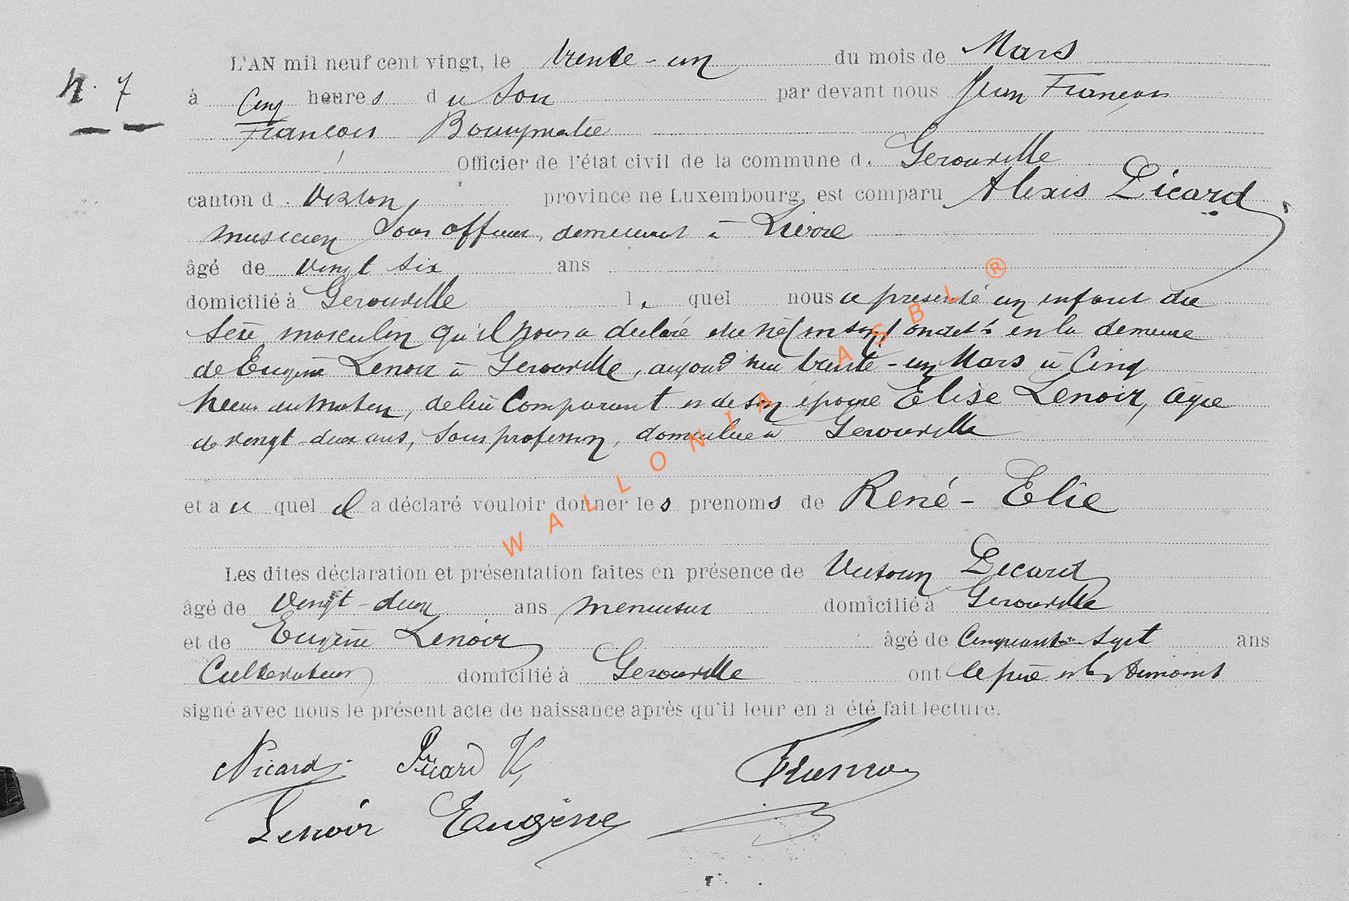 N. 7
L'AN mil neuf cent vingt, le trente-un du mois de Mars
à Cinq heures du Soir par devant nous Jean François
François
Officier de l'état civil de la commune d. Gerouville
canton d. Virton province de Luxembourg, est comparu Alexis Picard
musicien Sous officier, demeurant à Lierre
âgé de Vingt six ans
domicilié à Gerouville l. quel nous a présenté un enfant du
sexe masculin qu'il nous a déclaré être né en la demeure
de Eugène Lenoir à Gerouville, aujourd'hui trente-un Mars à Cinq
heures du Matin, de lui Comparant et de son épouse Elise Lenoir, âgée
de vingt-deux ans, Sans profession, domiciliée à Gerouville
et au quel il a déclaré vouloir donner les prenoms de René-Elie
Les dites déclaration et présentation faites en présence de Victorin Picard
âgé de Vingt-deux ans menuisier domicilié à Gerouville
et de Eugène Lenoir âgé de Cinquante-Sept ans
Cultivateur domicilié à Gerouville ont le père et les témoins
signé avec nous le présent acte de naissance après qu'il leur en a été fait lecture.
Picard. Picard V.
Lenoir Eugène
WALLONIA ASBL ®